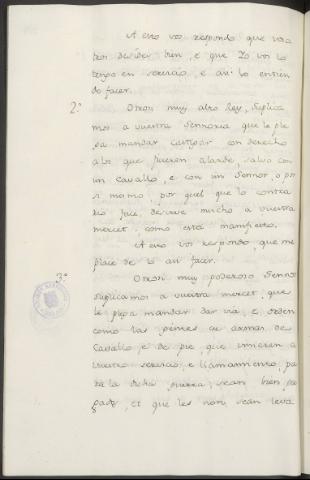 A esto vos respondo que vos
dezides bien, e que Yo vos lo
tengo en servicio, e asi lo entien
do facer.
2.º Otrosi muy alto Rey, suplica
mos a vuestra Sennoria que le ple
ga mandar castigar con derecho
a los que fueren alarde, salvo con
un Cavallo, e con un Sennor, o por
si mismo, por quel que lo contra
rio face, desirve mucho a vuestra
mercet, como está manifiesto.
A esto vos respondo, que me
place de lo asi facer.
3.º Otrosi muy poderoso Sennor
suplicamos a vuestra mercet, que
le plega mandar dar via, e orden
como las gentes de armas de
Cavallo, e de pie, que vinieren a
vuestro servicio, e llamamiento, pa
ra la dicha guerra, sean bien pa
gados, et que les non sean leva